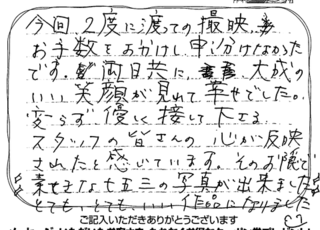 今回2度に渡っての撮映、
お手数をおかけし申し分けなかった
です。両日共に、大成の
いい笑顔が見れて幸せでした。
変らず優しく接して下さる
スタッフの皆さんの心が反映
されたと感じています。そのお陰で
素せきな七五三の写真が出来ました
とても、とても、いい作品になりました
ご記入いただきありがとうございます